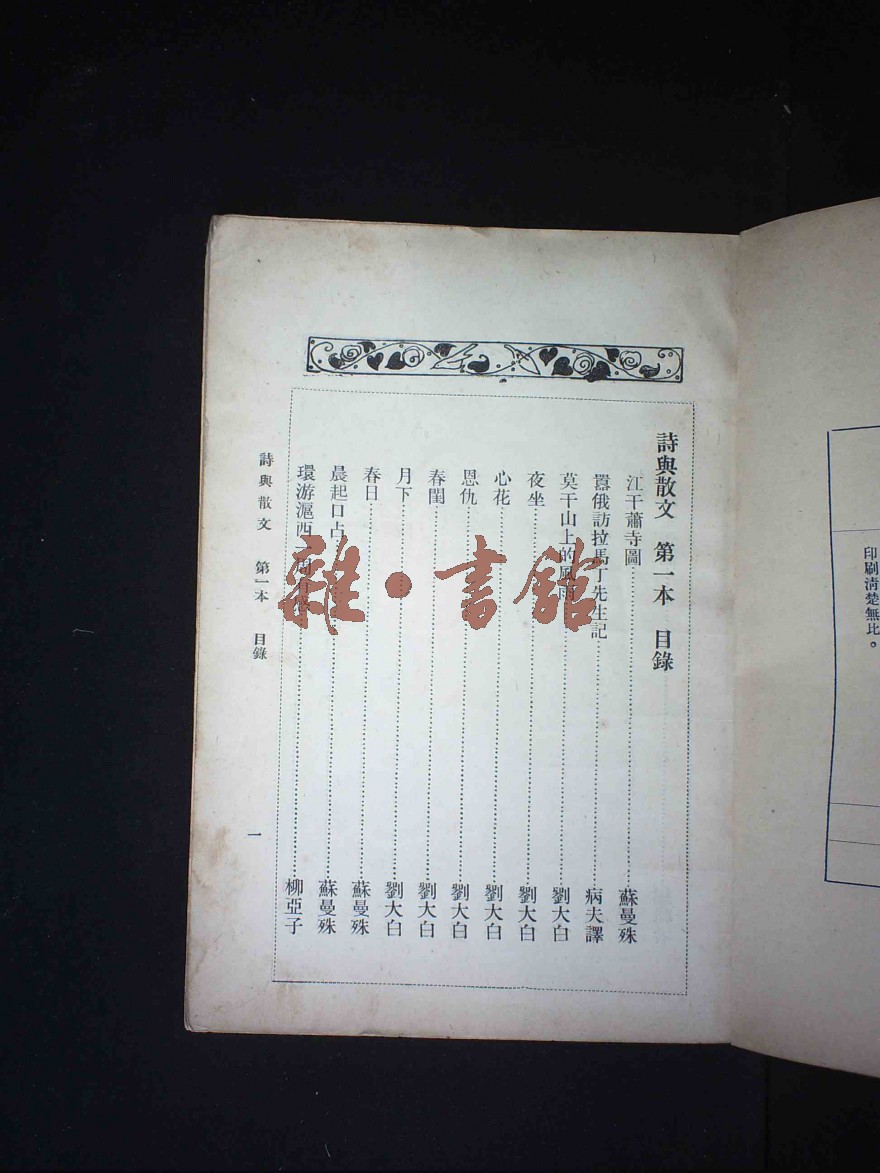 詩與散文 第一本 目錄
江干蕭寺圖 蘇曼殊
囂俄訪拉馬丁先生記 病夫譯
莫干山上的風雨 劉大白
夜坐 劉大白
心花 劉大白
恩仇 劉大白
春閨 劉大白
月下 劉大白
春日 蘇曼殊
晨起口占 蘇曼殊
環游滬西一周有感 柳亞子
詩與散文 第一本 目錄 一
印刷清楚無比。
雜·書館